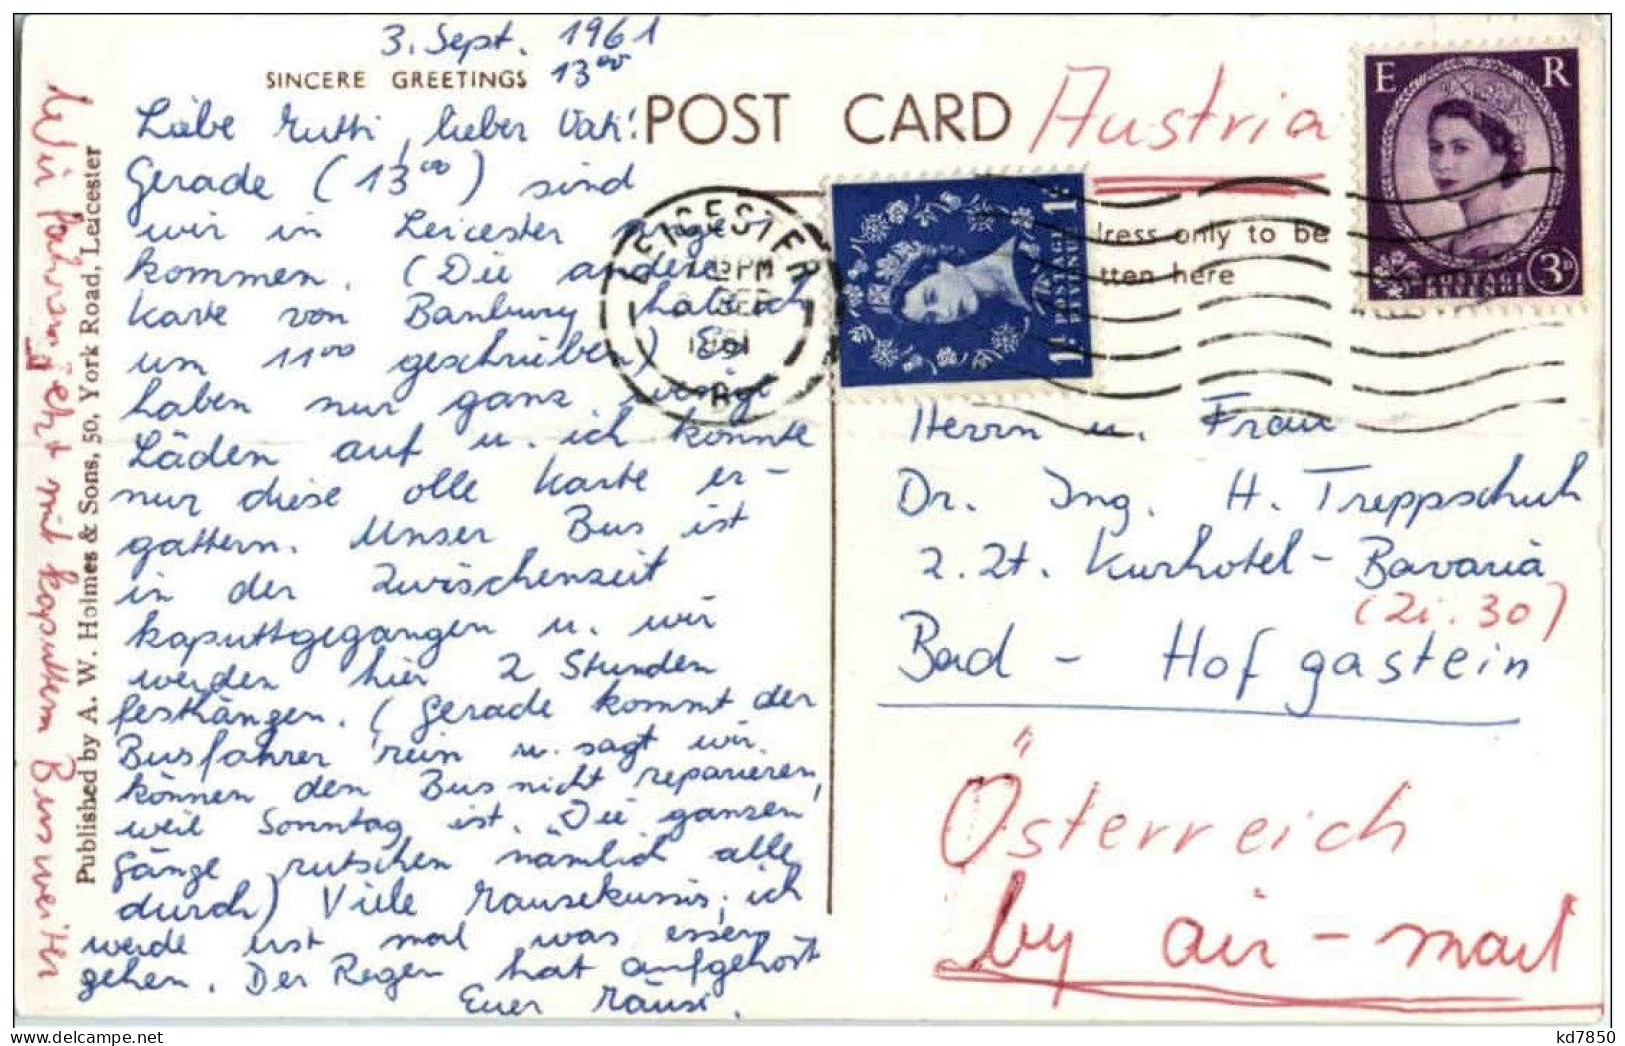 3. Sept. 1961
SINCERE GREETINGS 13⁰⁰
Liebe Mutti, lieber Vati!
Gerade (13⁰⁰) sind
wir in Leicester ange-
kommen. (Die andere
Karte von Banbury hab ich
um 11⁰⁰ geschrieben) Es
haben nur ganz wenige
Läden auf u. ich konnte
nur diese olle Karte er-
gattern. Unser Bus ist
in der Zwischenzeit
kaputtgegangen u. wir
werden hier 2 Stunden
festhängen. (Gerade kommt der
Busfahrer 'rein u. sagt wir
können den Bus nicht reparieren,
weil Sonntag ist. Die ganzen
Gänge rutschen nämlich alle
durch) Viele Mausekussis, ich
werde erst mal was essen
gehen. Der Regen hat aufgehört
Euer Mäusi.
Wir fahren jetzt mit kaputtem Bus weiter
Published by A. W. Holmes & Sons, 50, York Road, Leicester
POST CARD
Austria
E R
3D
POSTAGE REVENUE
1D POSTAGE REVENUE 1D
LEICESTER
PM
SEP
1961
dress only to be
tten here
Herrn u. Frau
Dr. Ing. H. Treppschuh
z. Zt. Kurhotel - Bavaria
(Zi. 30)
Bad - Hofgastein
Österreich
by air - mail
kd7850